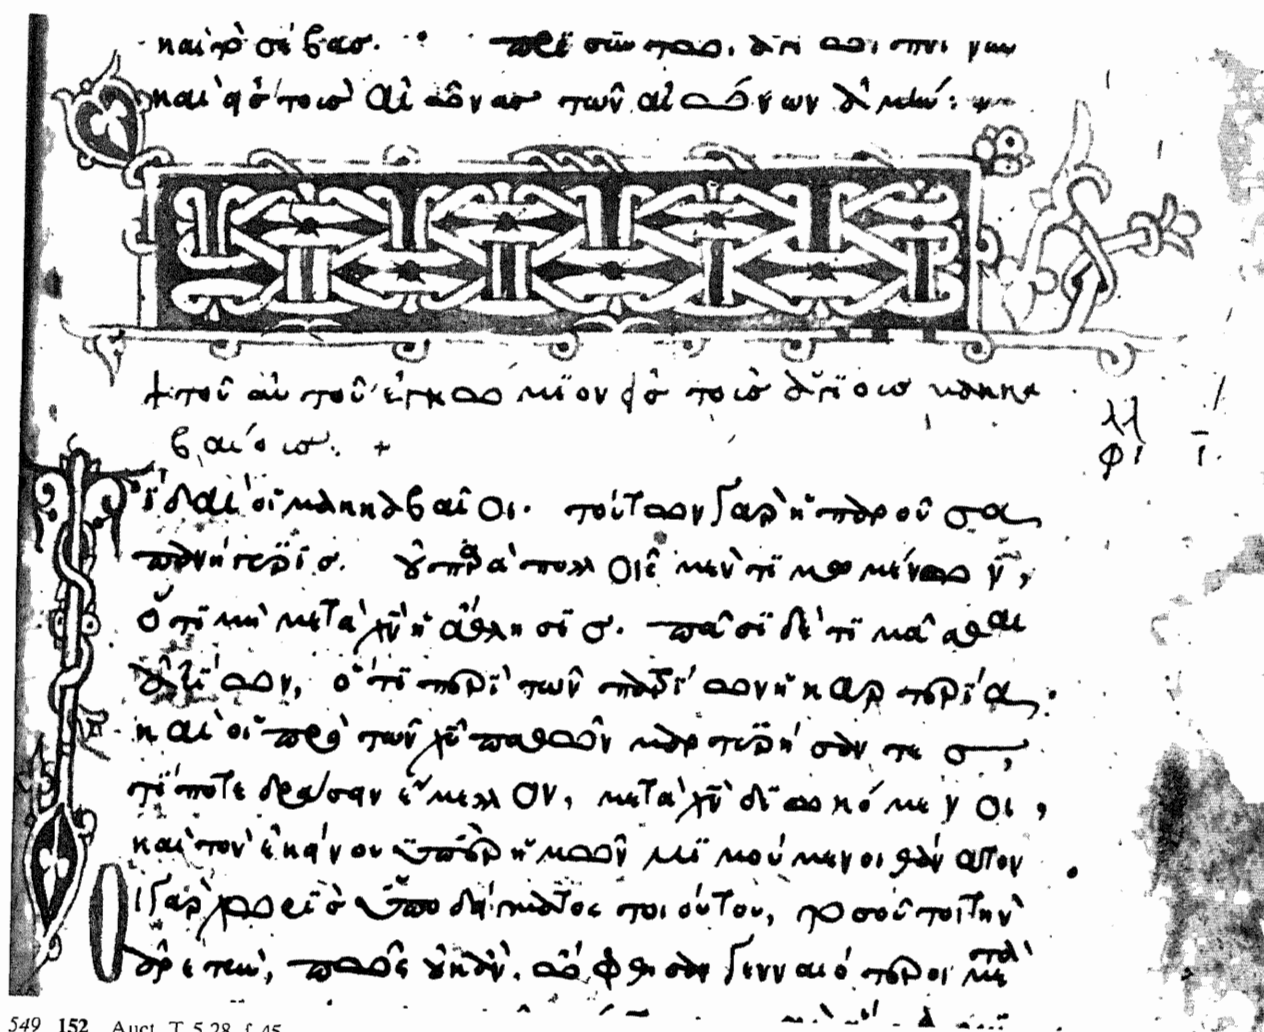 καὶ τὸ σέβας. πρὶ σὺν τῶ ἁγίω πνι νῦν
καὶ εἰς τοὺς αἰῶνας τῶν αἰώνων ἀμήν:
+ τοῦ αὐτοῦ ἐγκώμιον εἰς τοὺς ἁγίους μακκα
βαίους. +
Τί δαὶ οἱ μακκαβαῖοι. τούτων γὰρ ἡ παροῦσα
πανήγυρις. οὐ παρὰ πολλοῖς μὲν τιμωμένων,
ὅτι μὴ μετὰ χν ἡ ἄθλησις. πᾶσι δὲ τιμᾶσθαι
ἀξίων, ὅτι περὶ τῶν πατρίων ἡ καρτερία.
καὶ οἱ πρὸ τῶν χυ παθῶν μαρτυρήσαντες,
τί ποτε δράσειν ἔμελλον, μετὰ χν διωκόμενοι,
καὶ τὸν ἐκείνου ὑπὲρ ἡμῶν μιμούμενοι θάνατον
Οἱ γὰρ χωρὶς ὑποδείγματος τοιούτου, τοσοῦτοι τὴν
ἀρετὴν, πῶς οὐκ ἂν ὤφθησαν γενναιότεροι μετὰ
549 152 Auct. T. 5.28, f. 45